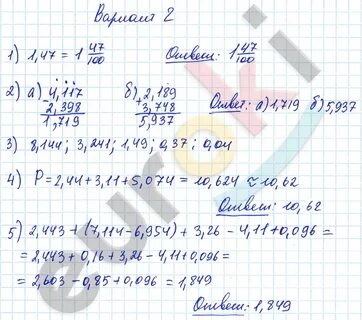 Вариант 2
1) 1,47 = 1 47/100 Ответ: 1 47/100
2) а) 4,117 б) 2,189
- 2,398 + 3,748 Ответ: а) 1,719 б) 5,937
1,719 5,937
3) 8,144; 3,241; 1,49; 0,37; 0,04
4) P = 2,44 + 3,11 + 5,074 = 10,624 ≈ 10,62
Ответ: 10,62
5) 2,443 + (7,114 - 6,954) + 3,26 - 4,11 + 0,096 =
= 2,443 + 0,16 + 3,26 - 4,11 + 0,096 =
= 2,603 - 0,85 + 0,096 = 1,849
Ответ: 1,849
euroki